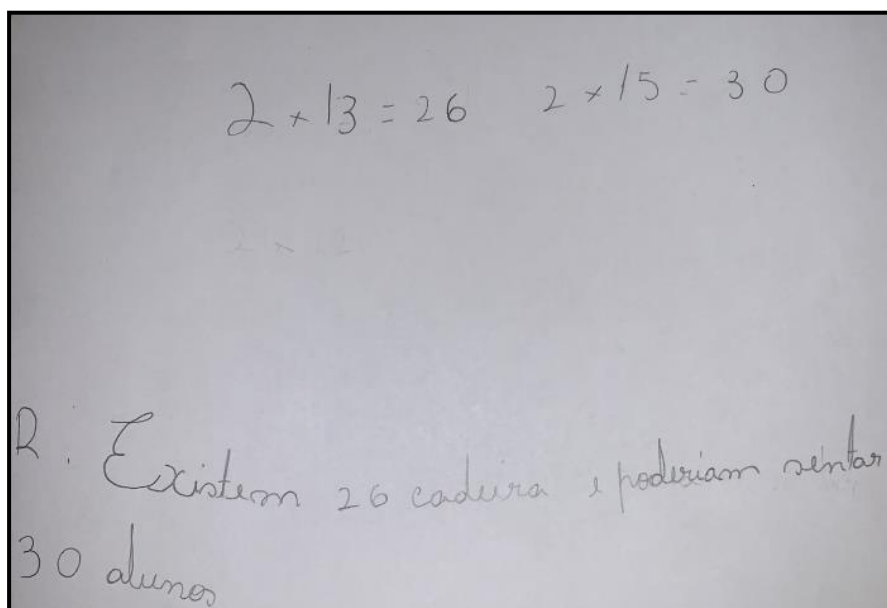 2 × 13 = 26 2 × 15 = 30
2 × 12
R. Existem 26 cadeira e poderiam sentar
30 alunos